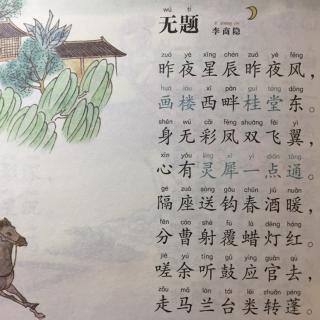 wú tí
无题
lǐ shāng yǐn
李商隐
zuó yè xīng chén zuó yè fēng
昨夜星辰昨夜风，
huà lóu xī pàn guì táng dōng
画楼西畔桂堂东。
shēn wú cǎi fèng shuāng fēi yì
身无彩凤双飞翼，
xīn yǒu líng xī yì diǎn tōng
心有灵犀一点通。
gé zuò sòng gōu chūn jiǔ nuǎn
隔座送钩春酒暖，
fēn cáo shè fù là dēng hóng
分曹射覆蜡灯红。
jiē yú tīng gǔ yīng guān qù
嗟余听鼓应官去，
zǒu mǎ lán tái lèi zhuǎn péng
走马兰台类转蓬。